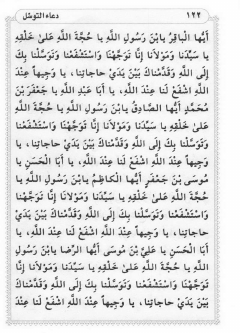 ١٢٢ دعاء التوسّل
أَيُّهَا الْبَاقِرُ يَابْنَ رَسُولِ اللَّهِ يَا حُجَّةَ اللَّهِ عَلَىٰ خَلْقِهِ
يَا سَيِّدَنَا وَمَوْلَانَا إِنَّا تَوَجَّهْنَا وَاسْتَشْفَعْنَا وَتَوَسَّلْنَا بِكَ
إِلَى اللَّهِ وَقَدَّمْنَاكَ بَيْنَ يَدَيْ حَاجَاتِنَا، يَا وَجِيهاً عِنْدَ
اللَّهِ اشْفَعْ لَنَا عِنْدَ اللَّهِ، يَا أَبَا عَبْدِ اللَّهِ يَا جَعْفَرَ بْنَ
مُحَمَّدٍ أَيُّهَا الصَّادِقُ يَابْنَ رَسُولِ اللَّهِ يَا حُجَّةَ اللَّهِ
عَلَىٰ خَلْقِهِ يَا سَيِّدَنَا وَمَوْلَانَا إِنَّا تَوَجَّهْنَا وَاسْتَشْفَعْنَا
وَتَوَسَّلْنَا بِكَ إِلَى اللَّهِ وَقَدَّمْنَاكَ بَيْنَ يَدَيْ حَاجَاتِنَا، يَا
وَجِيهاً عِنْدَ اللَّهِ اشْفَعْ لَنَا عِنْدَ اللَّهِ، يَا أَبَا الْحَسَنِ يَا
مُوسَى بْنَ جَعْفَرٍ أَيُّهَا الْكَاظِمُ يَابْنَ رَسُولِ اللَّهِ يَا
حُجَّةَ اللَّهِ عَلَىٰ خَلْقِهِ يَا سَيِّدَنَا وَمَوْلَانَا إِنَّا تَوَجَّهْنَا
وَاسْتَشْفَعْنَا وَتَوَسَّلْنَا بِكَ إِلَى اللَّهِ وَقَدَّمْنَاكَ بَيْنَ يَدَيْ
حَاجَاتِنَا، يَا وَجِيهاً عِنْدَ اللَّهِ اشْفَعْ لَنَا عِنْدَ اللَّهِ، يَا
أَبَا الْحَسَنِ يَا عَلِيَّ بْنَ مُوسَى أَيُّهَا الرِّضَا يَابْنَ رَسُولِ
اللَّهِ يَا حُجَّةَ اللَّهِ عَلَىٰ خَلْقِهِ يَا سَيِّدَنَا وَمَوْلَانَا إِنَّا
تَوَجَّهْنَا وَاسْتَشْفَعْنَا وَتَوَسَّلْنَا بِكَ إِلَى اللَّهِ وَقَدَّمْنَاكَ
بَيْنَ يَدَيْ حَاجَاتِنَا، يَا وَجِيهاً عِنْدَ اللَّهِ اشْفَعْ لَنَا عِنْدَ